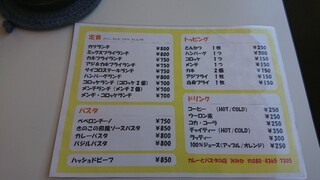 定食
カツランチ ¥800
ミックスフライランチ ¥800
カキフライランチ ¥750
アジ&カキフライランチ ¥750
サイコロステーキランチ ¥750
ハンバーグランチ ¥800
コロッケランチ（コロッケ2個） ¥700
メンチランチ（メンチ2個） ¥700
メンチ・コロッケランチ ¥700
パスタ
ペペロンチーノ ¥750
きのこの和風ソースパスタ ¥850
カレーパスタ ¥850
バジルパスタ ¥850
ハッシュドビーフ ¥850
トッピング
とんかつ 1枚 ¥250
ハンバーグ 1枚 ¥300
コロッケ 1つ ¥250
メンチ 1つ ¥250
カキ 2個 ¥250
アジフライ 1枚 ¥250
白身フライ 1枚 ¥250
ドリンク
コーヒー（HOT/COLD） ¥250
ウーロン茶 ¥250
コカ・コーラ ¥250
チャイティー（HOT/COLD） ¥300
ラッティー ¥300
100%ジュース（アップル/オレンジ） ¥250